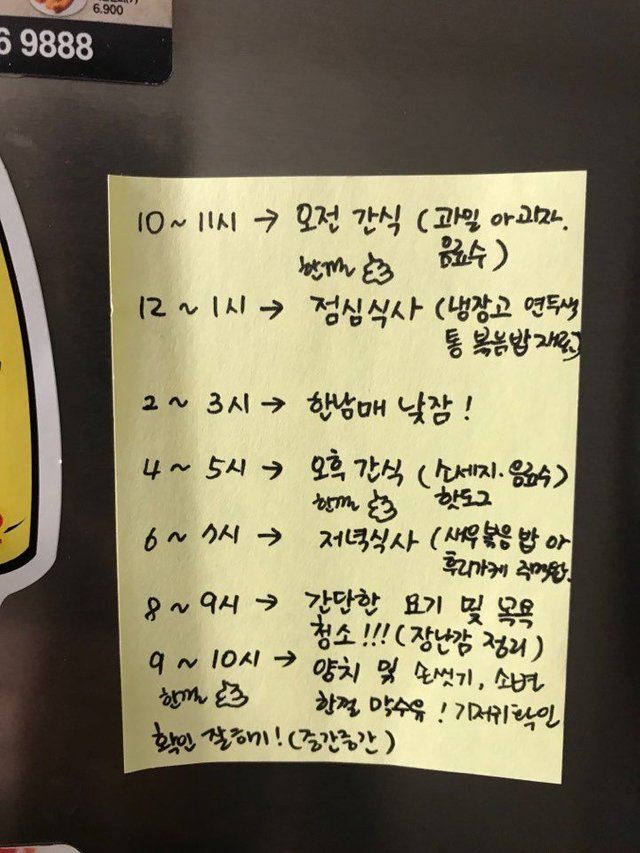 6.900
6 9888
10 ~ 11시 → 오전 간식 (과일 or 과자.
음료수)
한껄
12 ~ 1시 → 점심식사 (냉장고 연두색
통 볶음밥 재료)
2 ~ 3시 → 한남매 낮잠!
4 ~ 5시 → 오후 간식 (소세지·음료수)
한껄 핫도그
6 ~ 7시 → 저녁식사 (새우볶음밥 or
후리가케 주먹밥.
8 ~ 9시 → 간단한 요기 및 목욕
청소!!! (장난감 정리)
9 ~ 10시 → 양치 및 손씻기, 소변
한껄 한껄 막수유! 기저귀확인
확인 잘하기! (중간중간)